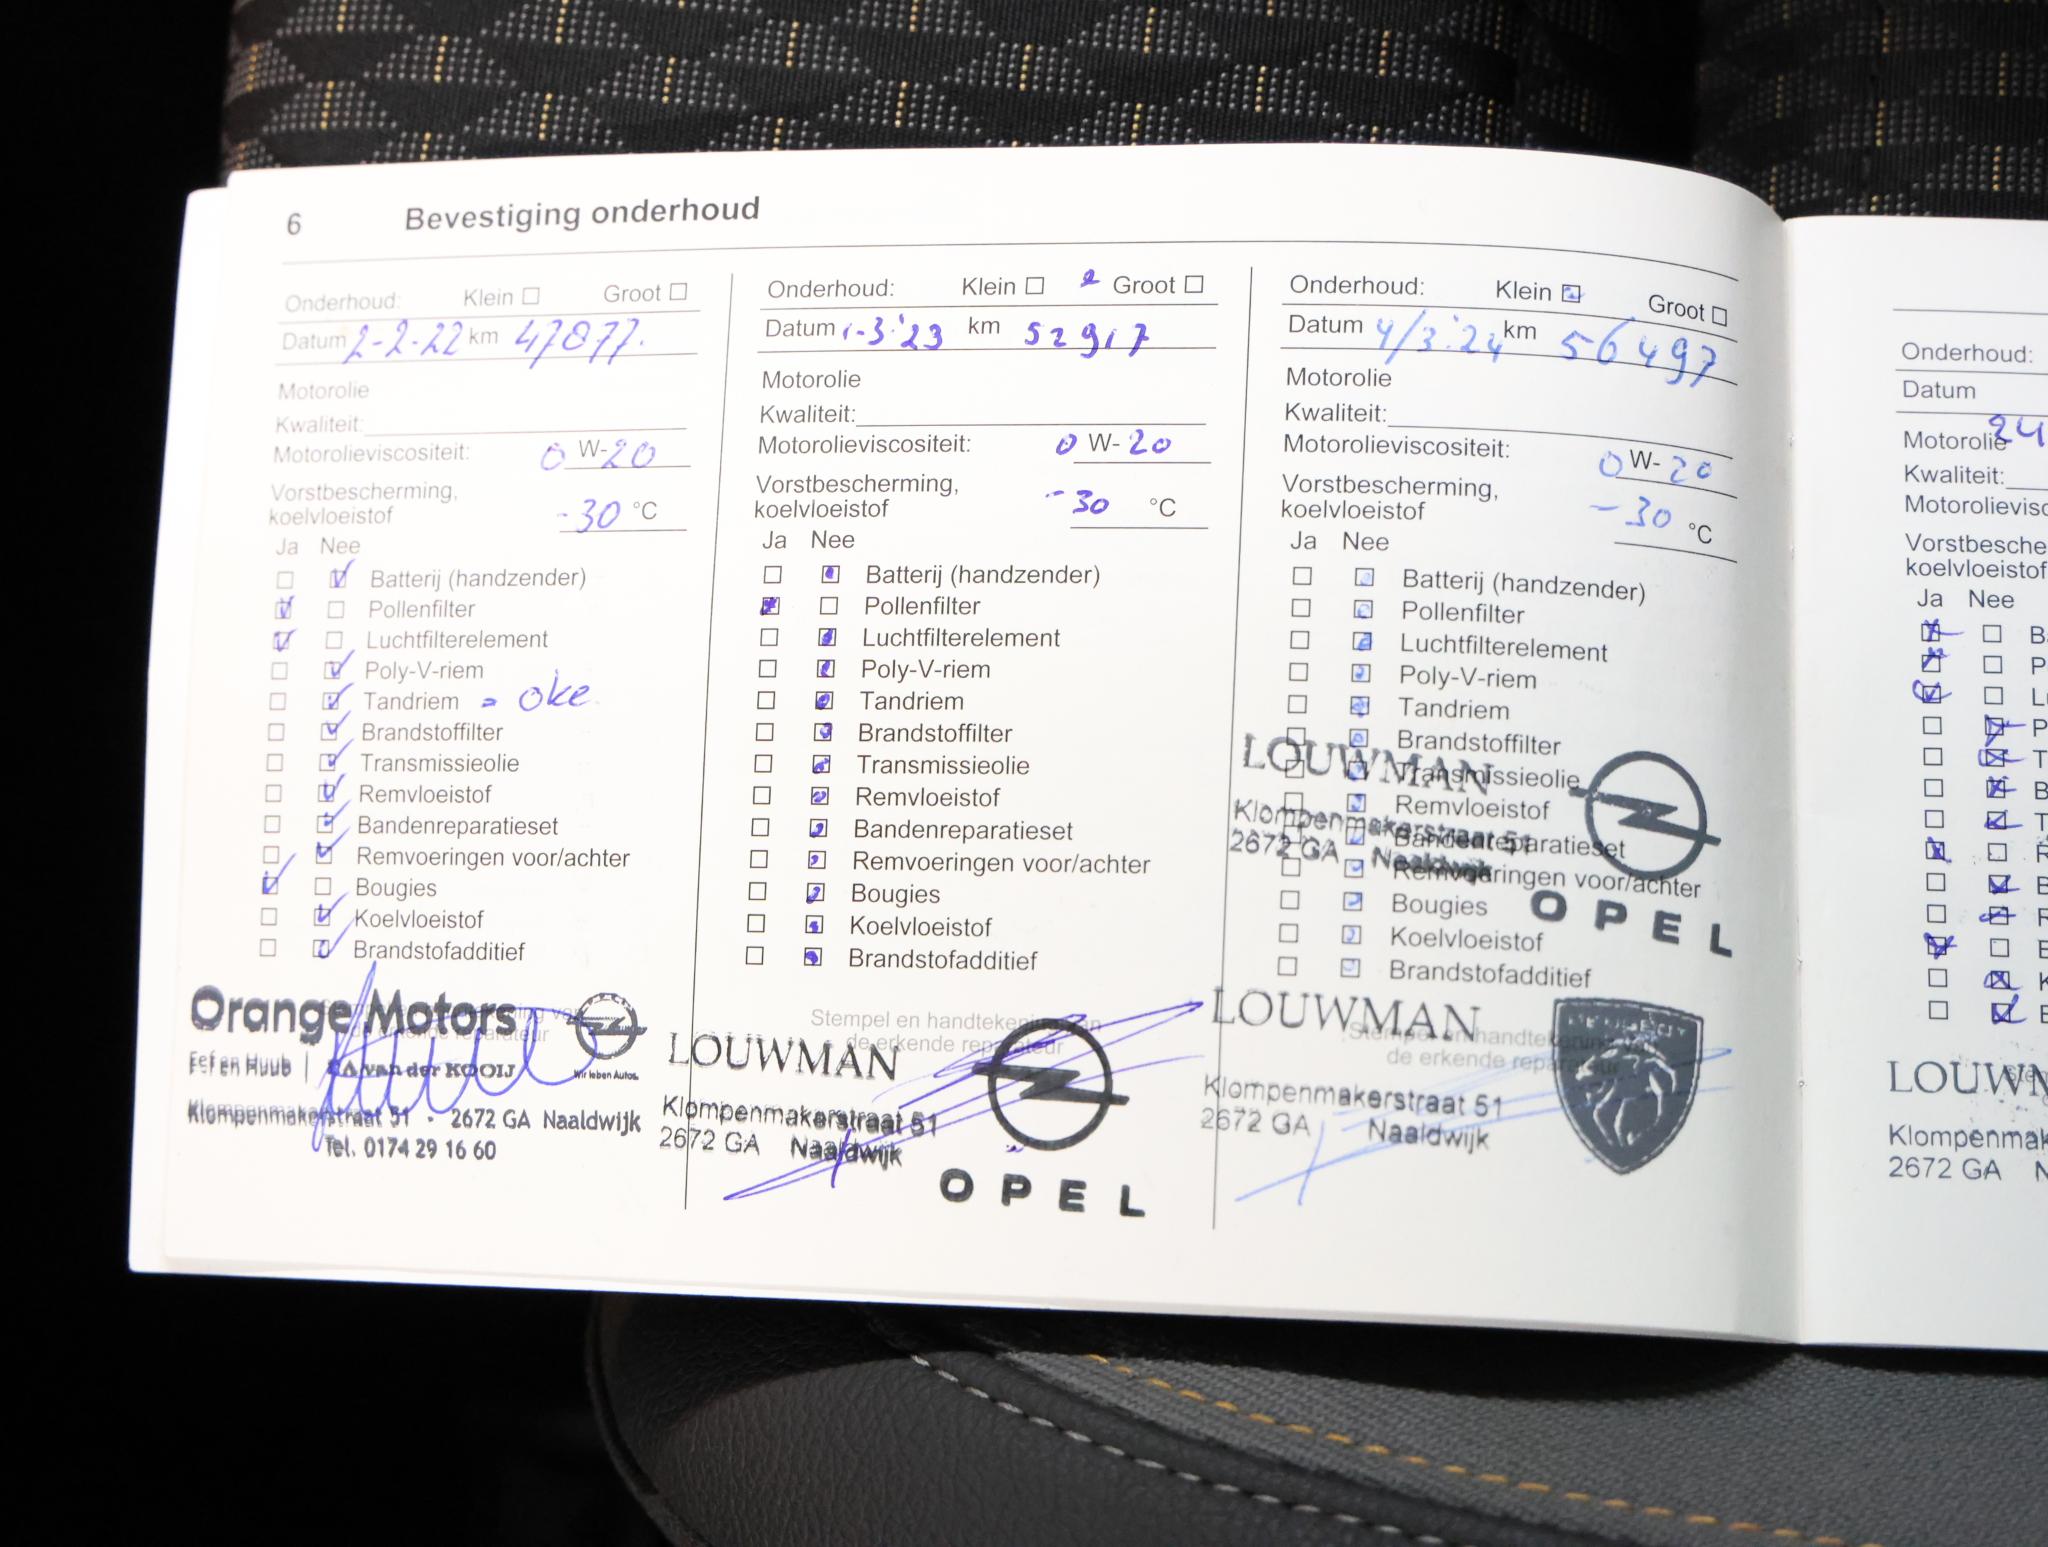 6 Bevestiging onderhoud
Onderhoud: Klein Groot
Datum 2-2-22 km 47877.
Motorolie
Kwaliteit:
Motorolieviscositeit: 0 W-20
Vorstbescherming,
koelvloeistof -30 °C
Ja Nee
Batterij (handzender)
Pollenfilter
Luchtfilterelement
Poly-V-riem
Tandriem = oke
Brandstoffilter
Transmissieolie
Remvloeistof
Bandenreparatieset
Remvoeringen voor/achter
Bougies
Koelvloeistof
Brandstofadditief
Orange Motors
Eef en Huub | van der KOOIJ
Wir leben Autos.
Klompenmakerstraat 51 · 2672 GA Naaldwijk
Tel. 0174 29 16 60
Onderhoud: Klein Groot
Datum 1-3-'23 km 52917
Motorolie
Kwaliteit:
Motorolieviscositeit: 0 W-20
Vorstbescherming,
koelvloeistof -30 °C
Ja Nee
Batterij (handzender)
Pollenfilter
Luchtfilterelement
Poly-V-riem
Tandriem
Brandstoffilter
Transmissieolie
Remvloeistof
Bandenreparatieset
Remvoeringen voor/achter
Bougies
Koelvloeistof
Brandstofadditief
Stempel en handtekening van
de erkende reparateur
LOUWMAN
Klompenmakerstraat 51
2672 GA Naaldwijk
OPEL
Onderhoud: Klein Groot
Datum 4/3'24 km 56497
Motorolie
Kwaliteit:
Motorolieviscositeit: 0 W-20
Vorstbescherming,
koelvloeistof -30 °C
Ja Nee
Batterij (handzender)
Pollenfilter
Luchtfilterelement
Poly-V-riem
Tandriem
Brandstoffilter
Transmissieolie
Remvloeistof
Bandenreparatieset
Remvoeringen voor/achter
Bougies
Koelvloeistof
Brandstofadditief
LOUWMAN
Klompenmakerstraat 51
2672 GA Naaldwijk
OPEL
Stempel en handtekening van
de erkende reparateur
LOUWMAN
Klompenmakerstraat 51
2672 GA Naaldwijk
Onderhoud:
Datum
24
Motorolie
Kwaliteit:
Motorolievisc
Vorstbesche
koelvloeistof
Ja Nee
LOUWM
Klompenmak
2672 GA N